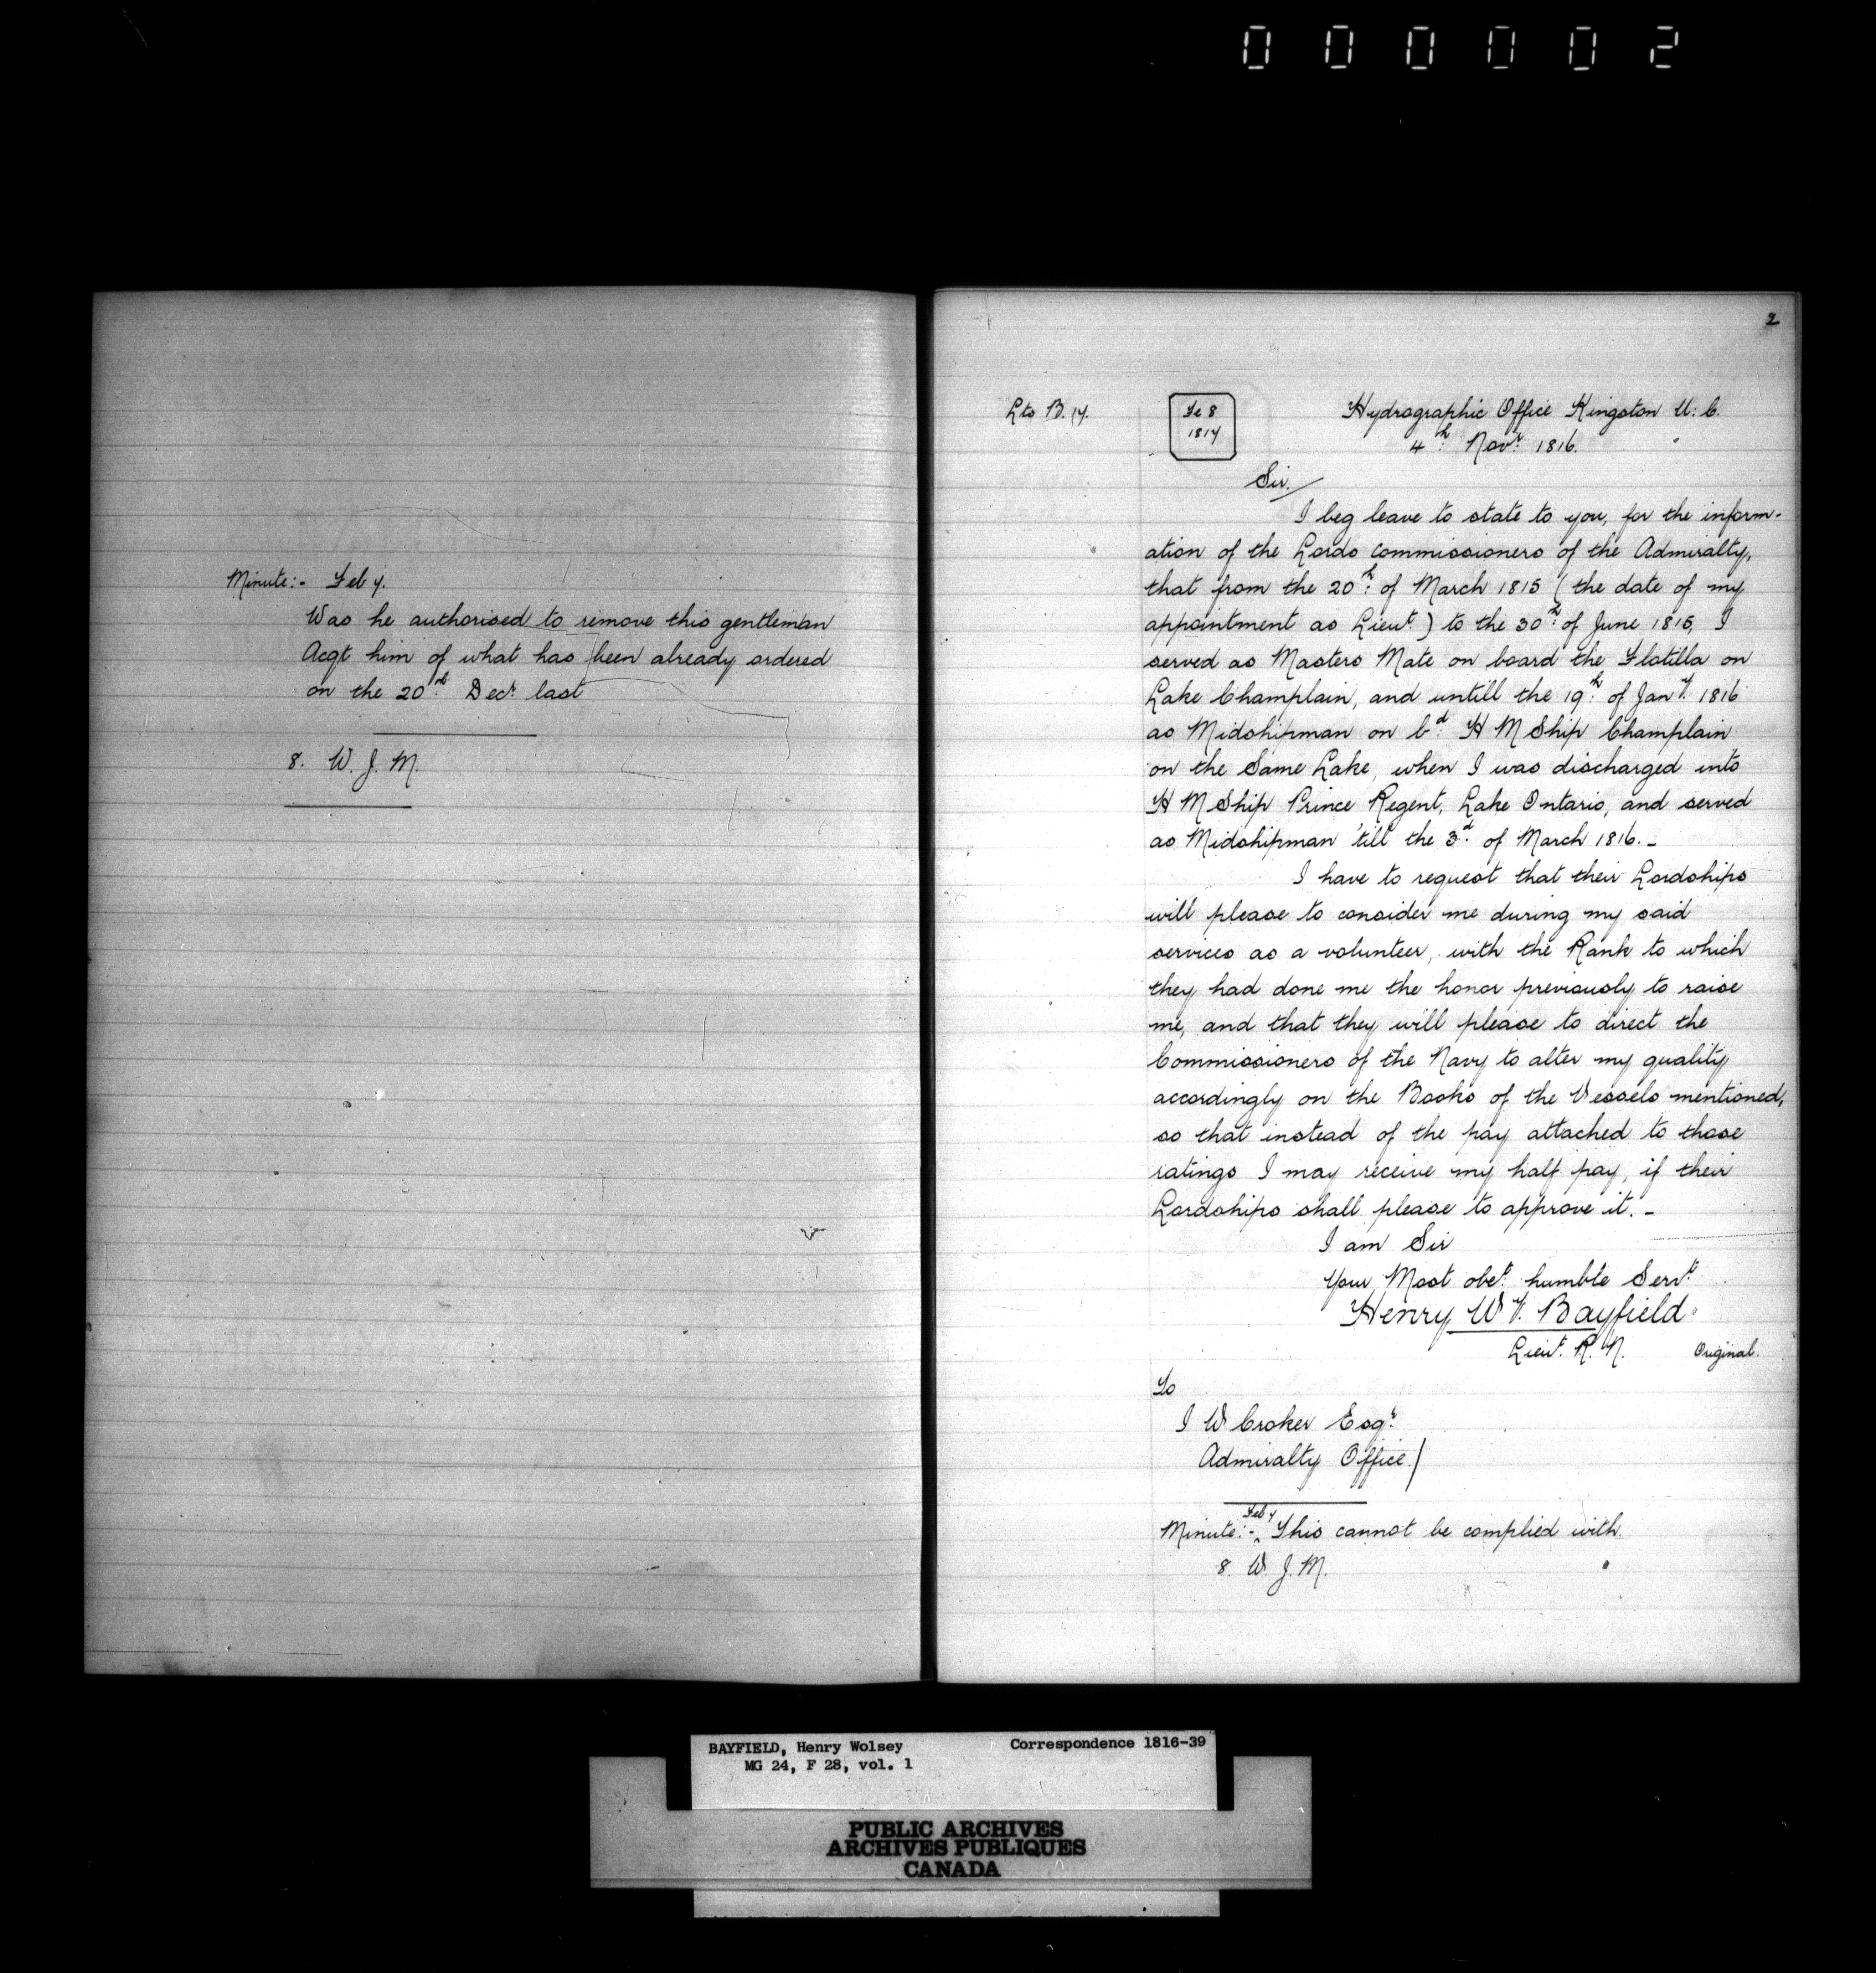 000002
Minute:- Feb 7.
Was he authorised to remove this gentleman
Acqt him of what has been already ordered
on the 20th Decr last
8. W. J. M.
2
Lts B. 17.
Fe 8
1817
Hydrographic Office Kingston U: C.
4th Novr 1816.
Sir.
I beg leave to state to you, for the inform-
ation of the Lords Commissioners of the Admiralty,
that from the 20th of March 1815 (the date of my
appointment as Lieut) to the 30th of June 1815, I
served as Masters Mate on board the Flotilla on
Lake Champlain, and untill the 19th of Jany. 1816
as Midshipman on bd H M Ship Champlain
on the Same Lake, when I was discharged into
H M Ship Prince Regent, Lake Ontario, and served
as Midshipman 'till the 3d of March 1816. -
I have to request that their Lordships
will please to consider me during my said
services as a volunteer, with the Rank to which
they had done me the honor previously to raise
me, and that they will please to direct the
Commissioners of the Navy to alter my quality
accordingly on the Books of the Vessels mentioned,
so that instead of the pay attached to those
ratings I may receive my half pay, if their
Lordships shall please to approve it. -
I am Sir
Your Most obet humble Servt
Henry Wy. Bayfield.
Lieut. R. N.
Original.
To
I W Croker Esqr
Admiralty Office.
Feb 7
Minute:- This cannot be complied with.
8. W. J. M.
BAYFIELD, Henry Wolsey Correspondence 1816-39
MG 24, F 28, vol. 1
PUBLIC ARCHIVES
ARCHIVES PUBLIQUES
CANADA